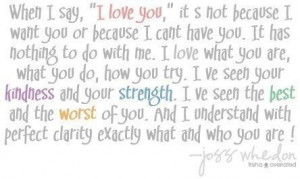 When I say, "I love you," it s not because I
want you or because I cant have you. It has
nothing to do with me. I love what you are,
what you do, how you try. I've seen your
kindness and your strength. I ve seen the best
and the worst of you. And I understand with
perfect clarity exactly what and who you are !
-joss whedon